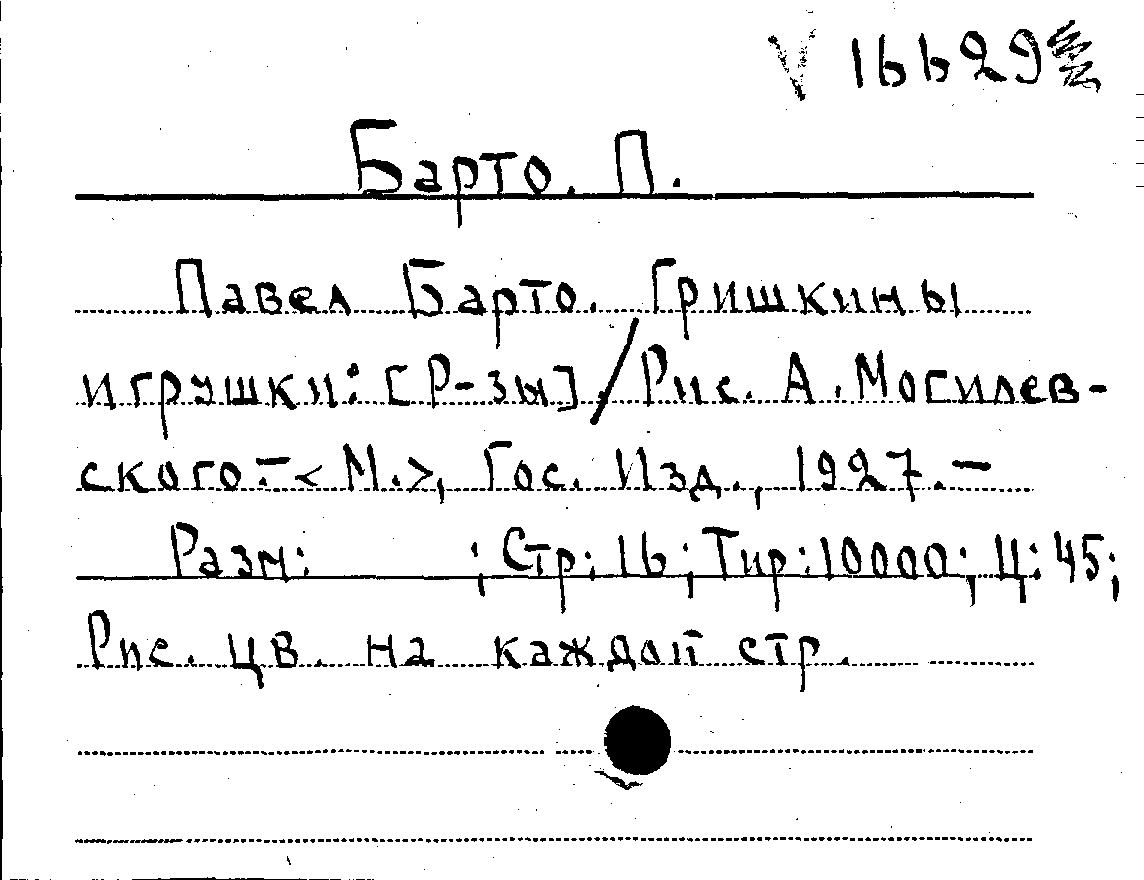 V 16629
Барто. П.
Павел Барто. Гришкины
игрушки: [Р-зы]. / Рис. А. Могилев-
ского.-< М.>, Гос. Изд., 1927. —
Разм: ; Стр: 16; Тир: 10000; Ц: 45;
Рис. цв. на каждой стр.